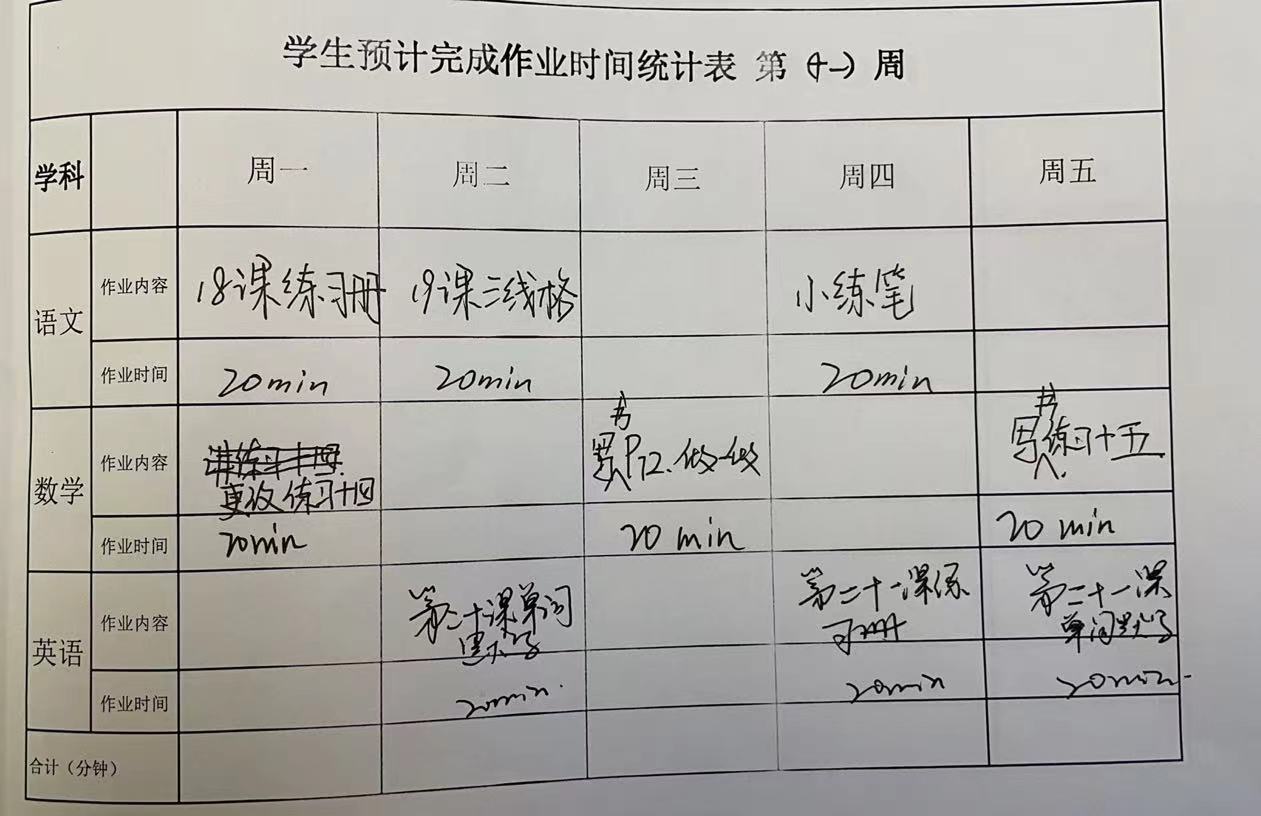 学生预计完成作业时间统计表 第（十一）周
学科 周一 周二 周三 周四 周五
语文 作业内容 18课练习册 19课三线格 小练笔
作业时间 20min 20min 20min
数学 作业内容 更改练习十四 书 P72.做一做 书 写练习十五
作业时间 20min 20 min 20 min
英语 作业内容 第二十课单词 第二十一课练 第二十一课
默写 习册 单词默写
作业时间 20min. 20min 20min.
合计（分钟）